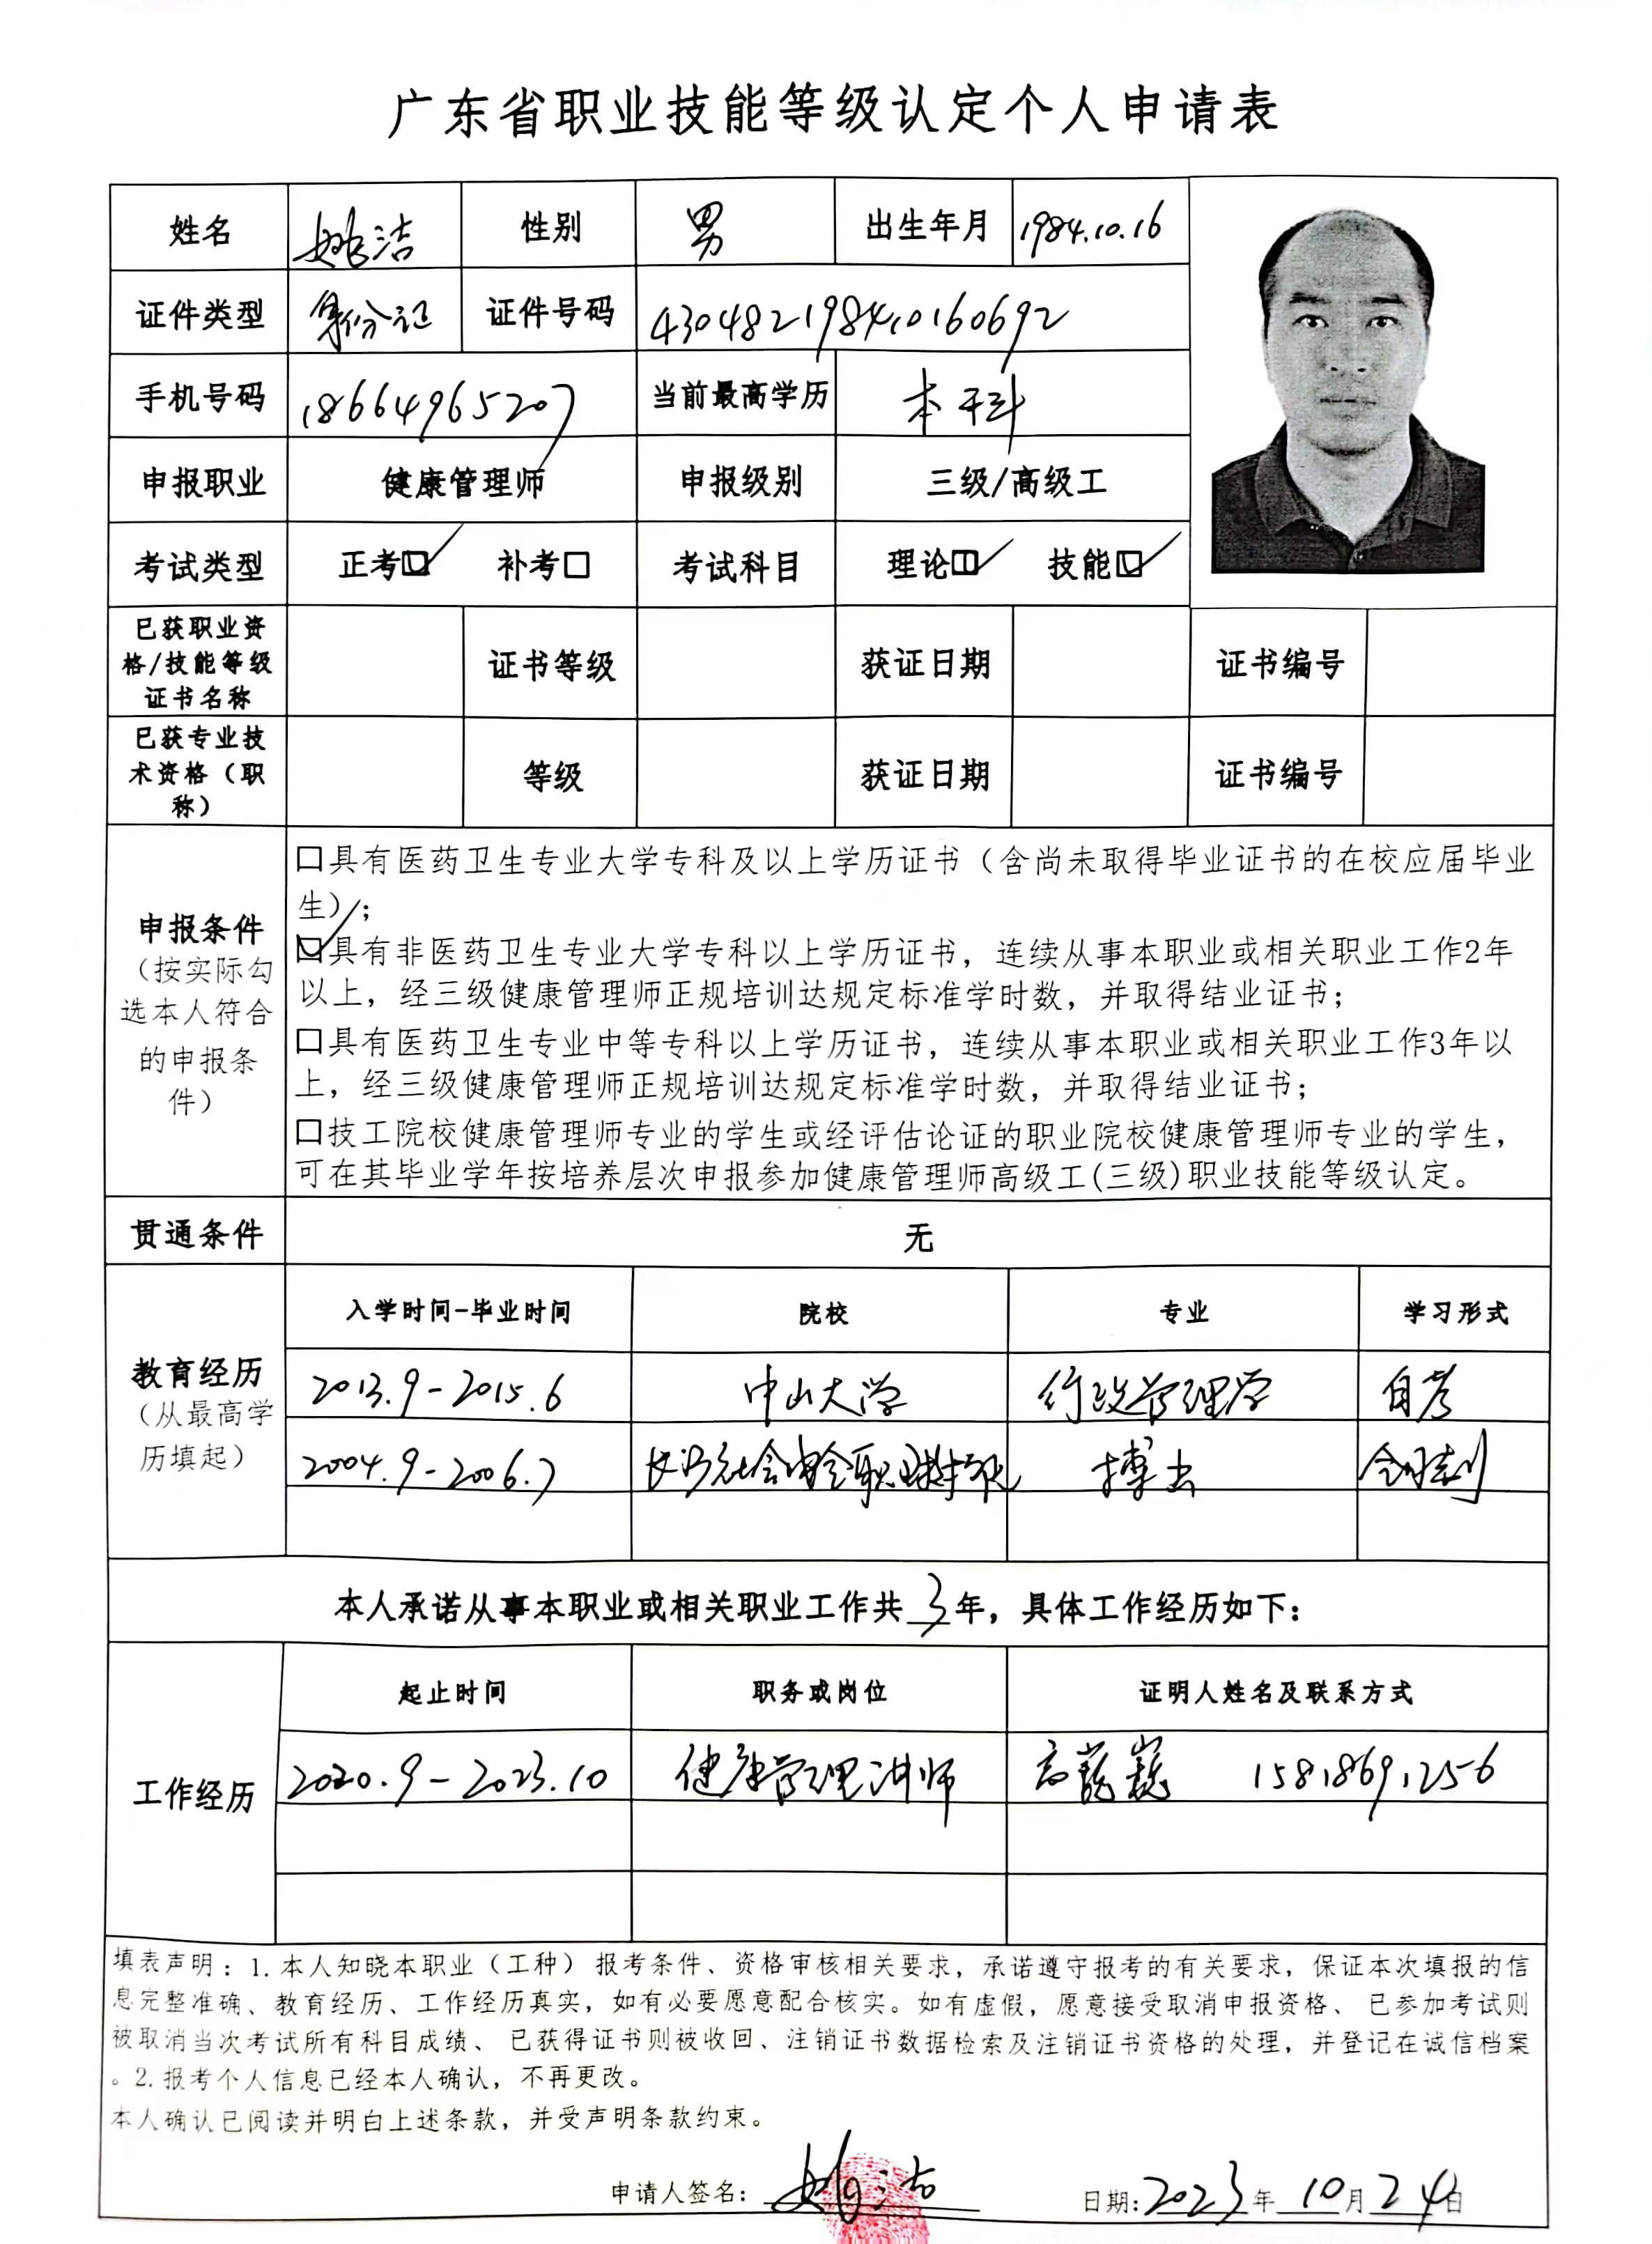 广东省职业技能等级认定个人申请表
姓名 姚洁 性别 男 出生年月 1984.10.16
证件类型 身份证 证件号码 430482198410160692
手机号码 18664965207 当前最高学历 本科
申报职业 健康管理师 申报级别 三级/高级工
考试类型 正考☑ 补考□ 考试科目 理论☑ 技能☑
已获职业资
格/技能等级
证书名称 证书等级 获证日期 证书编号
已获专业技
术资格（职
称） 等级 获证日期 证书编号
申报条件
（按实际勾
选本人符合
的申报条
件）
□具有医药卫生专业大学专科及以上学历证书（含尚未取得毕业证书的在校应届毕业
生）；
☑具有非医药卫生专业大学专科以上学历证书，连续从事本职业或相关职业工作2年
以上，经三级健康管理师正规培训达规定标准学时数，并取得结业证书；
□具有医药卫生专业中等专科以上学历证书，连续从事本职业或相关职业工作3年以
上，经三级健康管理师正规培训达规定标准学时数，并取得结业证书；
□技工院校健康管理师专业的学生或经评估论证的职业院校健康管理师专业的学生，
可在其毕业学年按培养层次申报参加健康管理师高级工(三级)职业技能等级认定。
贯通条件 无
教育经历
（从最高学
历填起）
入学时间-毕业时间 院校 专业 学习形式
2013.9-2015.6 中山大学 行政管理学 自考
2004.9-2006.7 长沙社会 职业技 全日制
本人承诺从事本职业或相关职业工作共3年，具体工作经历如下：
工作经历
起止时间 职务或岗位 证明人姓名及联系方式
2020.9-2023.10 健康管理讲师 高巍巍 15818691256
填表声明：1.本人知晓本职业（工种）报考条件、资格审核相关要求，承诺遵守报考的有关要求，保证本次填报的信
息完整准确、教育经历、工作经历真实，如有必要愿意配合核实。如有虚假，愿意接受取消申报资格、 已参加考试则
被取消当次考试所有科目成绩、 已获得证书则被收回、注销证书数据检索及注销证书资格的处理，并登记在诚信档案
。2.报考个人信息已经本人确认，不再更改。
本人确认已阅读并明白上述条款，并受声明条款约束。
申请人签名：姚洁 日期:2023年10月24日